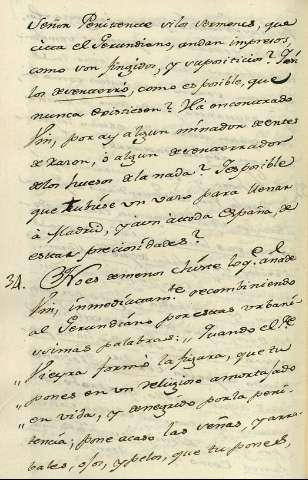 Señor Penitente vilos sermones, que
cita el Gerundiano, andan impresos,
como son fingidos, y supositicios? Si
los desenterró, como es posible, que
nunca existiesen? Há encontrado
Vm, por ay algun minador de entes
de razon, ò algun desenterrador
de los huesos de la nada? Es posible
que tubiese un vaso para llenar
à Madrid, y aun à toda España, de
estas preciosidades?
34. No es de menos chiste lo q.e añade
Vm, inmediatam.te recombiniendo
al Gerundiano por estas urbaní-
simas palabras: „ Quando el Pe
„ Vieyra formó la figura, que tu
„ pones en un religioso amortajado
„ en vida, y denegrido por la peni-
„ tencia; pone acaso las señas, y arra-
bales, ojos, y pelos, que tu pones,